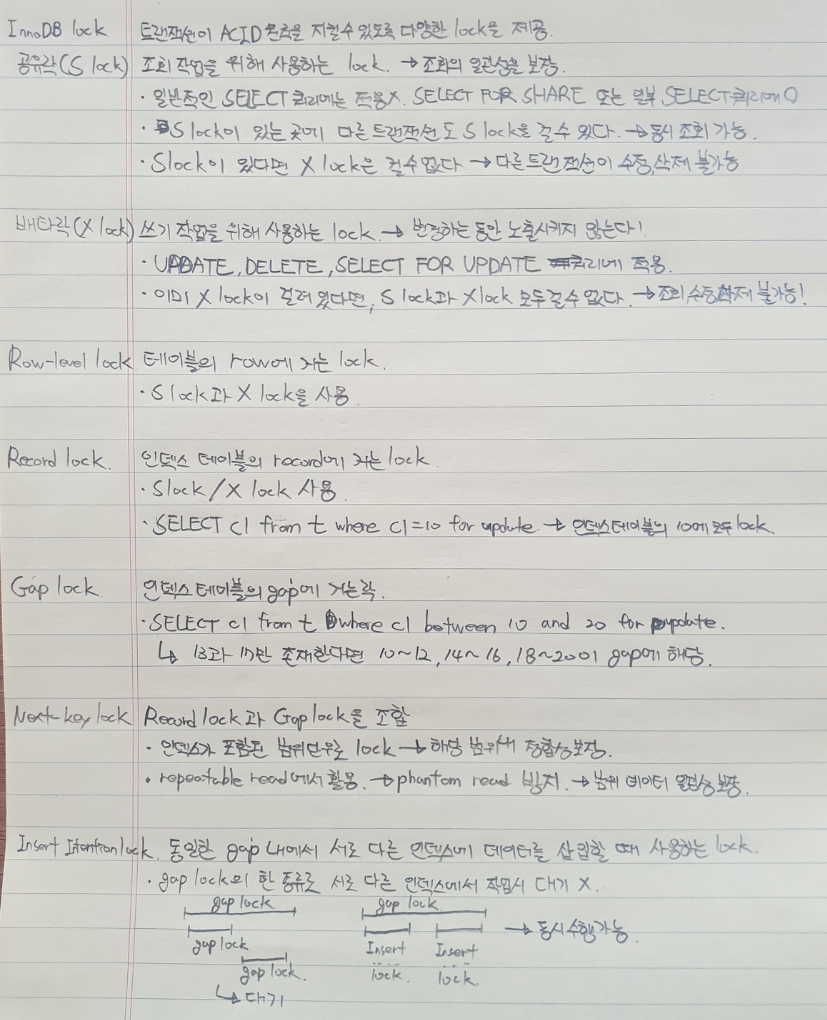 InnoDB lock 트랜잭션이 ACID 원칙을 지킬수 있도록 다양한 lock을 제공.
공유락(S lock) 조회 작업을 위해 사용하는 lock. → 조회의 일관성을 보장.
· 일반적인 SELECT 쿼리에는 적용X. SELECT FOR SHARE 또는 일부 SELECT 쿼리에 O
· S lock이 있는 곳에 다른 트랜잭션도 S lock을 걸 수 있다. → 동시 조회 가능.
· S lock이 있다면 X lock은 걸 수 없다 → 다른 트랜잭션이 수정,삭제 불가능
배타락(X lock) 쓰기 작업을 위해 사용하는 lock. → 변경하는 동안 노출시키지 않는다!
· UPDATE, DELETE, SELECT FOR UPDATE 쿼리에 적용.
· 이미 X lock이 걸려 있다면, S lock과 X lock 모두 걸 수 없다. → 조회 수정 삭제 불가능!
Row-level lock 테이블의 row에 거는 lock.
· S lock과 X lock을 사용
Record lock. 인덱스 테이블의 record에 거는 lock.
· S lock / X lock 사용
· SELECT c1 from t where c1=10 for update → 인덱스 테이블의 10에 모두 lock.
Gap lock 인덱스 테이블의 gap에 거는 락.
· SELECT c1 from t where c1 between 10 and 20 for update.
↳ 13과 17만 존재한다면 10~12, 14~16, 18~20이 gap에 해당.
Next-key lock Record lock과 Gap lock을 조합
· 인덱스가 포함된 범위단위로 lock → 해당 범위 정합성 보장.
· repeatable read에서 활용. → phantom read 방지. → 범위 데이터 일관성 보장.
Insert Itention lock. 동일한 gap 내에서 서로 다른 인덱스에 데이터를 삽입할 때 사용하는 lock.
· gap lock의 한 종류로 서로 다른 인덱스에서 작업시 대기 X.
gap lock gap lock
gap lock Insert Insert → 동시 수행가능.
gap lock. lock. lock.
↳ 대기